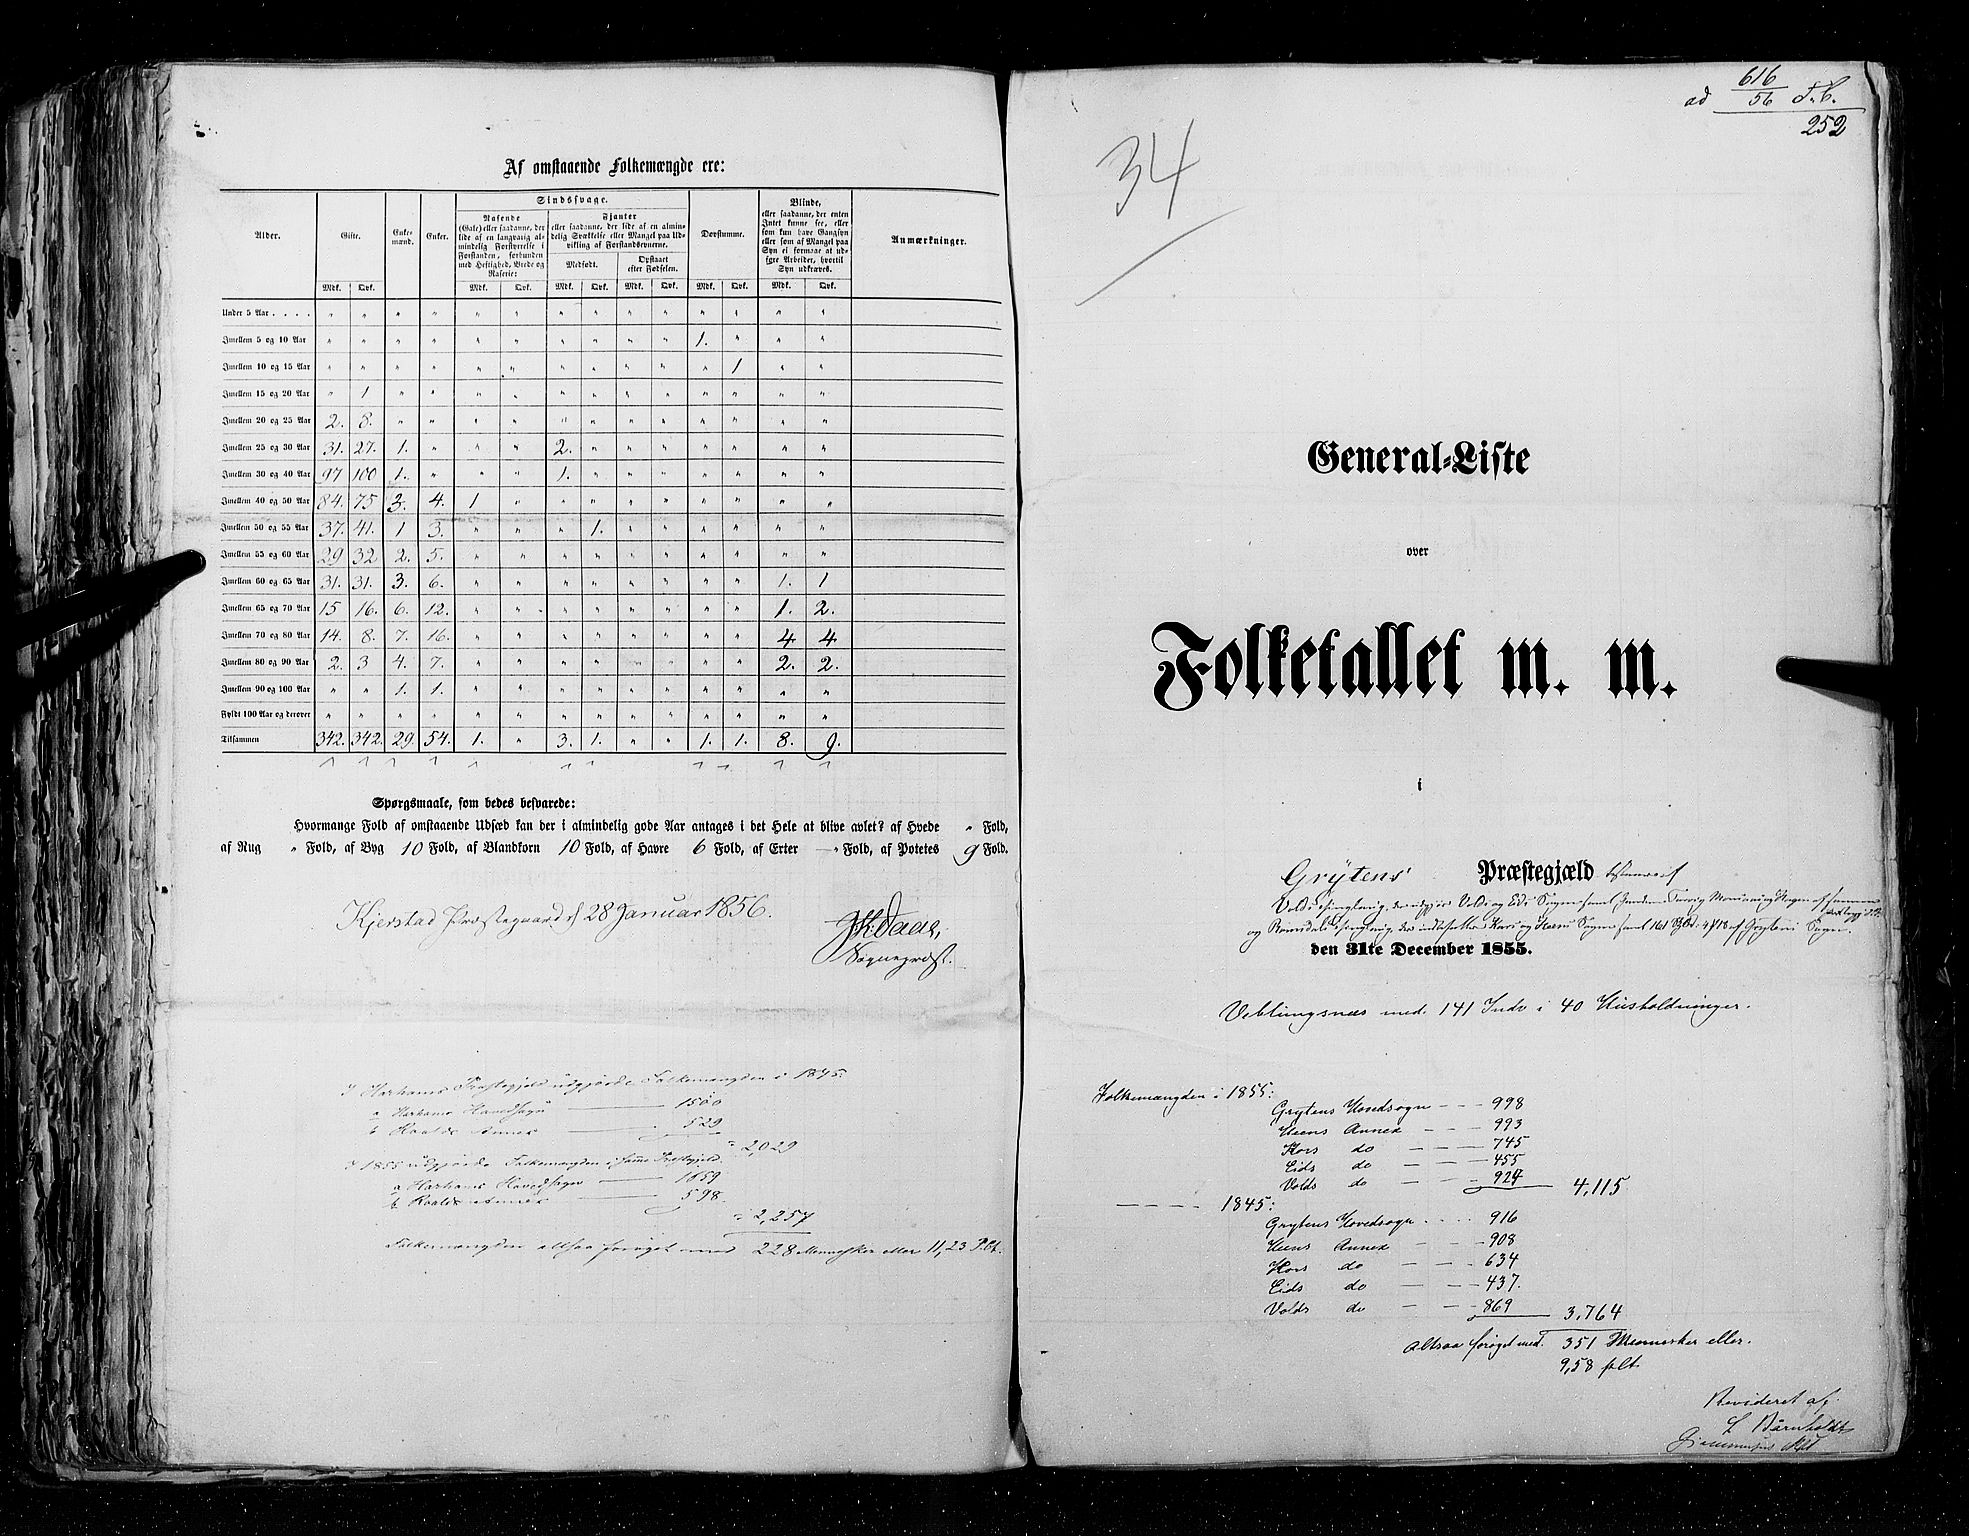 Af omstaaende Folkemængde ere:
Alder. Gifte. Enkemænd. Enker. Sindssvage. Døvstumme. Blinde, Anmærkninger.
Rasende (Gale) eller saadanne, der lide af en langvarig almindelig Forstyrrelse i Forstanden, forbunden med Heftighed, Vrede og Raserie:
Fjanter eller saadanne, der lide af en almindelig Svækkelse eller Mangel paa Udvikling af Forstandsevnerne.
Medfødt. Opstaaet efter Fødselen.
eller saadanne, der enten Intet kunne see, eller som kun have Gangsyn eller som af Mangel paa Syn ei formaae at udføre Arbeider, hvortil Syn udkræves.
Mdk. Qvk. Mdk. Qvk. Mdk. Qvk. Mdk. Qvk. Mdk. Qvk. Mdk. Qvk.
Under 5 Aar . . . . " " " " " " " " " " " " " "
Imellem 5 og 10 Aar " " " " " " " " " " 1. " " "
Imellem 10 og 15 Aar " " " " " " " " " " " 1 " "
Imellem 15 og 20 Aar " 1 " " " " " " " " " " " "
Imellem 20 og 25 Aar 2. 8. " " " " " " " " " " " "
Imellem 25 og 30 Aar 31. 27. 1. " " " 2. " " " " " " "
Imellem 30 og 40 Aar 97 100 1. " " " 1. " " " " " " "
Imellem 40 og 50 Aar 84. 75 3. 4. 1 " " " " " " " " "
Imellem 50 og 55 Aar 37. 41. 1 3. " " " 1. " " " " " "
Imellem 55 og 60 Aar 29 32 2. 5. " " " " " " " " " "
Imellem 60 og 65 Aar 31. 31. 3. 6. " " " " " " " " 1. 1
Imellem 65 og 70 Aar 15 16. 6. 12. " " " " " " " " 1. 2.
Imellem 70 og 80 Aar 14. 8. 7. 16. " " " " " " " " 4 4
Imellem 80 og 90 Aar 2. 3 4. 7. " " " " " " " " 2. 2.
Imellem 90 og 100 Aar " " 1. 1. " " " " " " " " " "
Fyldt 100 Aar og derover " " " " " " " " " " " " " "
Tilsammen 342. 342. 29. 54. 1. " 3. 1. " " 1. 1. 8. 9.
Spørgsmaale, som bedes besvarede:
Hvormange Fold af omstaaende Udsæd kan der i almindelig gode Aar antages i det Hele at blive avlet? af Hvede " Fold,
af Rug " Fold, af Byg 10 Fold, af Blandkorn 10 Fold, af Havre 6 Fold, af Erter " Fold, af Potetes 9 Fold.
Kjerstad Præstegaard d 28 Januar 1856.
Daae,
Sognepræst.
I Harhams Præstegjeld udgjorde Folkemængden i 1845:
a Harhams Hovedsogn 1500
b Roalds Annex 529
= 2,029
I 1855 udgjorde Folkemængden i samme Præstegjeld.
a Harhams Hovedsogn 1659
b Roalds Annex 598.
= 2,257
Folkemængden altsaa forøget med 228 Mennesker eller 11,23 P.Ct.
ad 616/56 S.C.
252
34
General-Liste
over
Folketallet m. m.
i
Grytens Præstegjæld
og
den 31te December 1855.
Veblungsnæs med 141 Indv i 40 Husholdninger.
Folkemængden i 1855:
Grytens Hovedsogn - - - 998
Heens Annex - - - 993
Kors do - - - 745
Eids do - - - 455
Volds do - - - 924
4,115
- - - - 1845:
Grytens Hovedsogn - - - 916
Heens Annex - - - 908
Kors do - - - 634
Eids do - - - 437.
Volds do - - - 869
3,764
altsaa forøget med 351 Mennesker eller
9,58 pCt
Revideret af